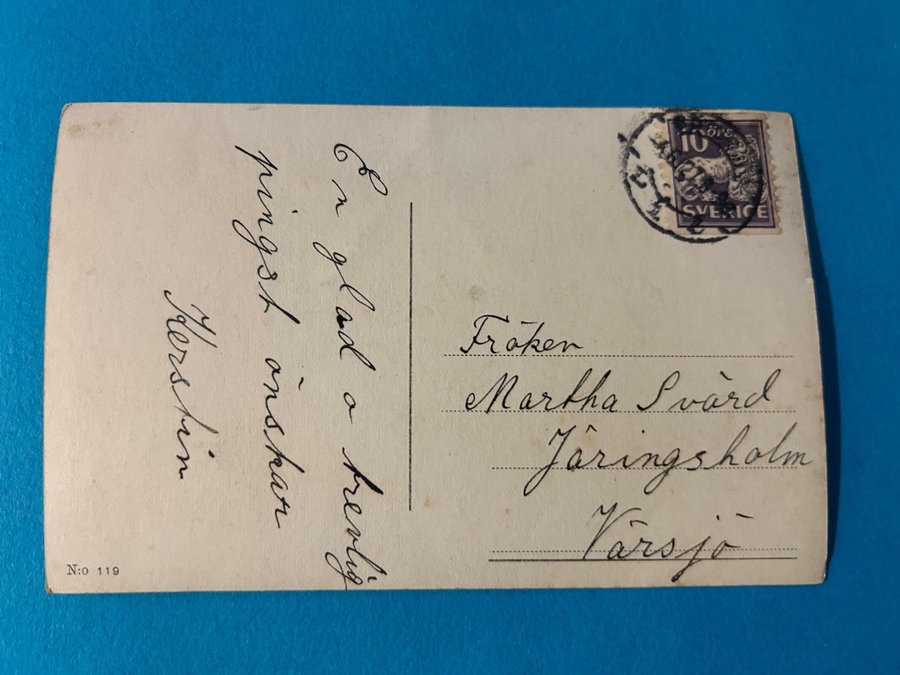 En glad o trevlig
pingst önskar
Kerstin
10 ÖRE
SVERIGE
Fröken
Martha Svärd
Järingsholm
Värsjö
N:o 119